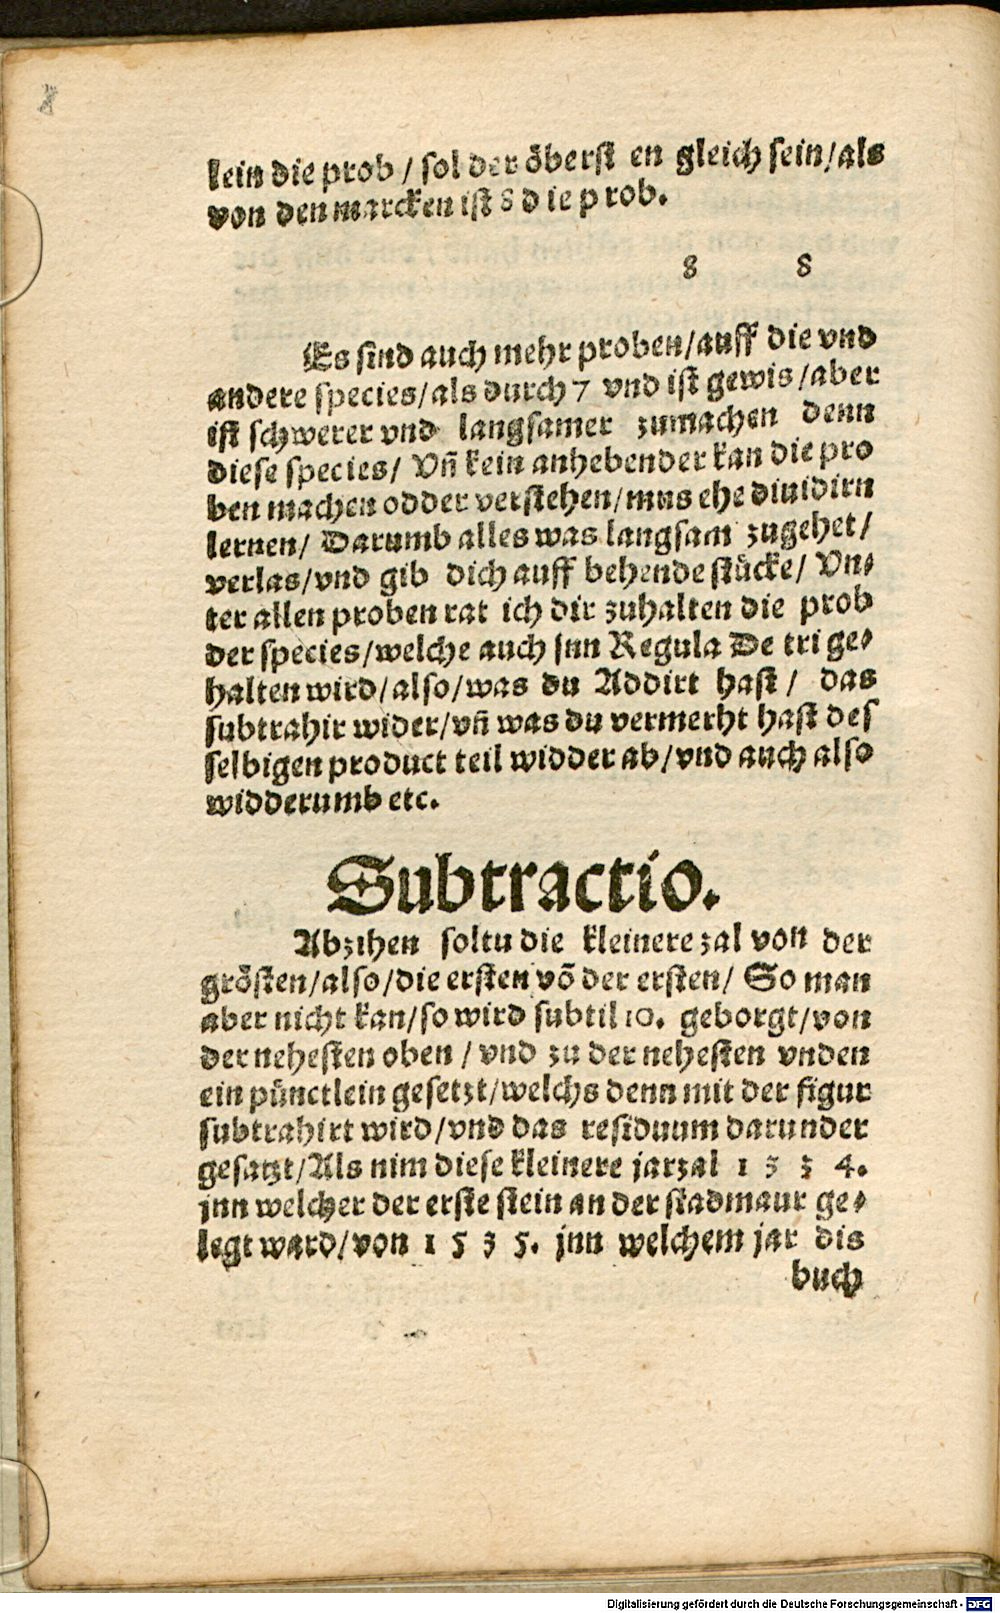 8
lein die prob / sol der öberst en gleich sein/als
von den marcken ist 8 d ie p rob.
8 8
Es sind auch mehr proben/auff die vnd
andere species/als durch 7 vnd ist gewis/aber
ist schwerer vnd langsamer zumachen denn
diese species/ Vñ kein anhebender kan die pro
ben machen odder verstehen/mus ehe diuidirn
lernen/ Darumb alles was langsam zugehet/
verlas/vnd gib dich auff behende stücke/ Vn⸗
ter allen proben rat ich dir zuhalten die prob
der species/welche auch jnn Regula De tri ge⸗
halten wird/also/was du Addirt hast/ das
subtrahir wider/vñ was du vermerht hast des
selbigen product teil widder ab/vnd auch also
widderumb etc.
Subtractio.
Abzihen soltu die kleinere zal von der
grösten/also/die ersten võ der ersten/ So man
aber nicht kan/so wird subtil 10. geborgt/von
der nehesten oben / vnd zu der nehesten vnden
ein pünctlein gesetzt/welchs denn mit der figur
subtrahirt wird/vnd das residuum darunder
gesatzt/Als nim diese kleinere jarzal 1 5 3 4.
jnn welcher der erste stein an der stadmaur ge⸗
legt ward/von 1 5 3 5. jnn welchem jar dis
buch
Digitalisierung gefördert durch die Deutsche Forschungsgemeinschaft - DFG